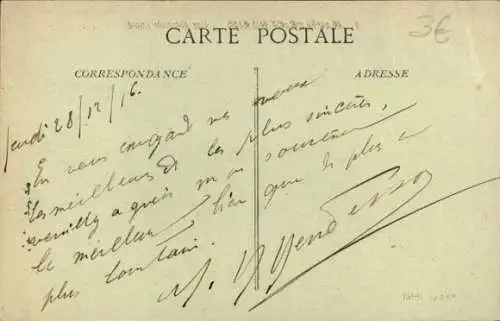 CARTE POSTALE
3€
CORRESPONDANCE
ADRESSE
Jeudi 28/12/16.
En vous envoyant mes voeux
les meilleurs et les plus sincères,
veuillez agréer mon souvenir
le meilleur, bien que le plus
plus lointain.